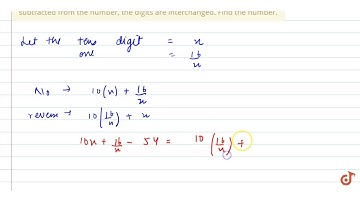 subtracted from the number, the digits are interchanged. Find the number.
Let the tens digit = x
one = 16/x
No → 10(x) + 16/x
reverse → 10(16/x) + x
10x + 16/x - 54 = 10(16/x) +